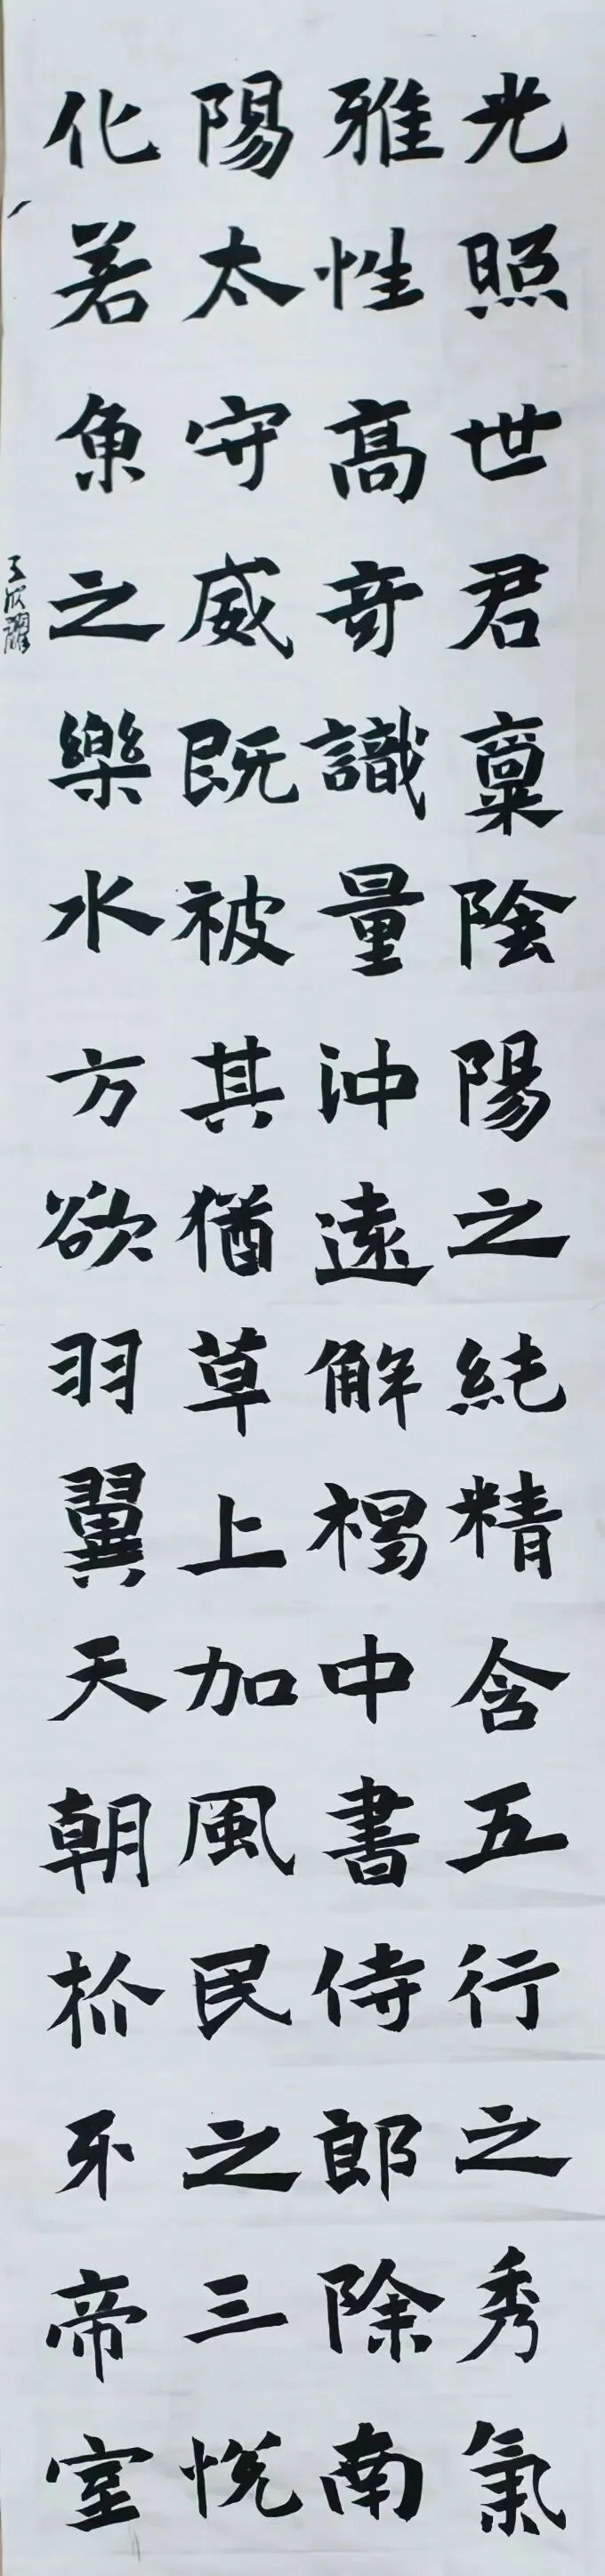 光照世君稟陰陽之純精含五行之秀氣
雅性高奇識量沖遠解褐中書侍郎除南
陽太守威既被其猶草上加風民之三悅
化若魚之樂水方欲羽翼天朝枛牙帝室